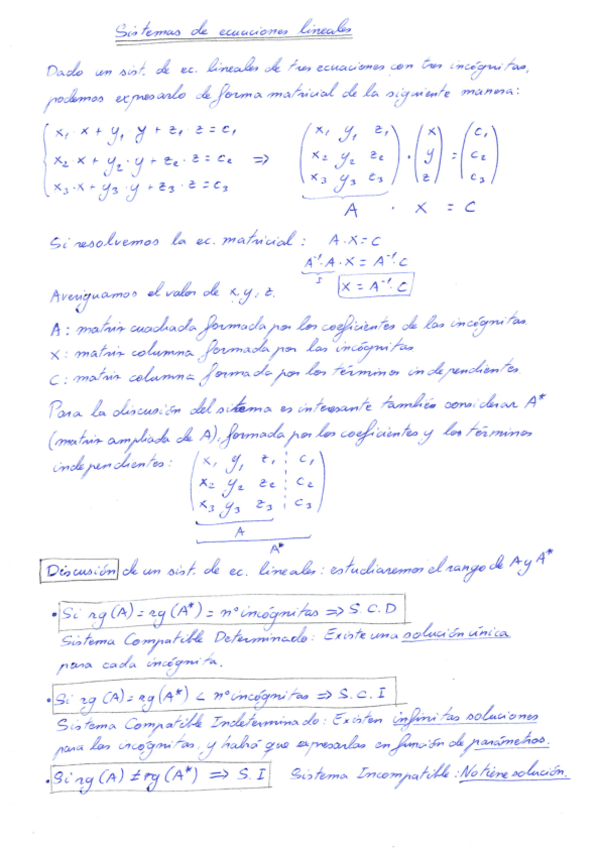 Sistemas de ecuaciones lineales
Dado un sist. de ec. lineales de tres ecuaciones con tres incógnitas,
podemos expresarlo de forma matricial de la siguiente manera:
x₁·x + y₁·y + z₁·z = c₁
x₂·x + y₂·y + z₂·z = c₂ => (x₁ y₁ z₁ / x₂ y₂ z₂ / x₃ y₃ z₃) · (x / y / z) = (c₁ / c₂ / c₃)
x₃·x + y₃·y + z₃·z = c₃
A · X = C
Si resolvemos la ec. matricial: A·X = C
A⁻¹·A·X = A⁻¹·C
I X = A⁻¹·C
Averiguamos el valor de x, y, z.
A: matriz cuadrada formada por los coeficientes de las incógnitas.
X: matriz columna formada por las incógnitas
C: matriz columna formada por los términos independientes.
Para la discusión del sistema es interesante también considerar A*
(matriz ampliada de A), formada por los coeficientes y los términos
independientes: x₁ y₁ z₁ ⋮ c₁
x₂ y₂ z₂ ⋮ c₂
x₃ y₃ z₃ ⋮ c₃
A
A*
Discusión de un sist. de ec. lineales: estudiaremos el rango de A y A*
• Si rg(A) = rg(A*) = nº incógnitas => S.C.D
Sistema Compatible Determinado: Existe una solución única
para cada incógnita.
• Si rg(A) = rg(A*) < nº incógnitas => S.C.I
Sistema Compatible Indeterminado: Existen infinitas soluciones
para las incógnitas, y habrá que expresarlas en función de parámetros.
• Si rg(A) ≠ rg(A*) => S.I Sistema Incompatible: No tiene solución.